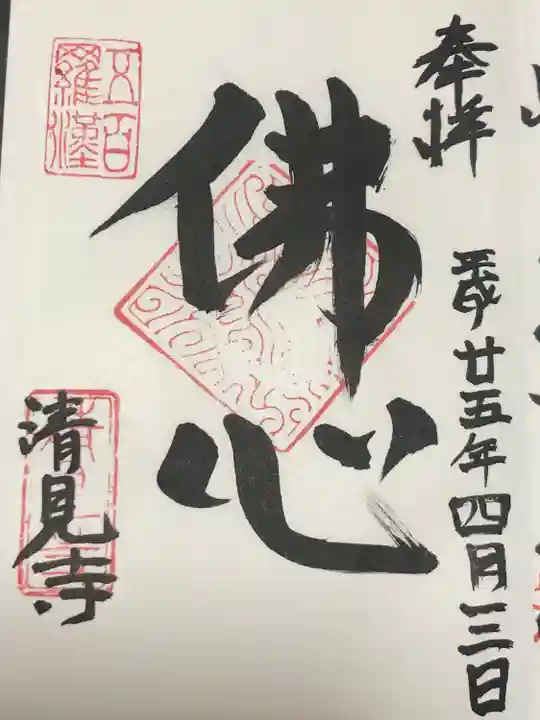 奉拝
平成廿五年四月三日
佛心
五百羅漢
清見寺